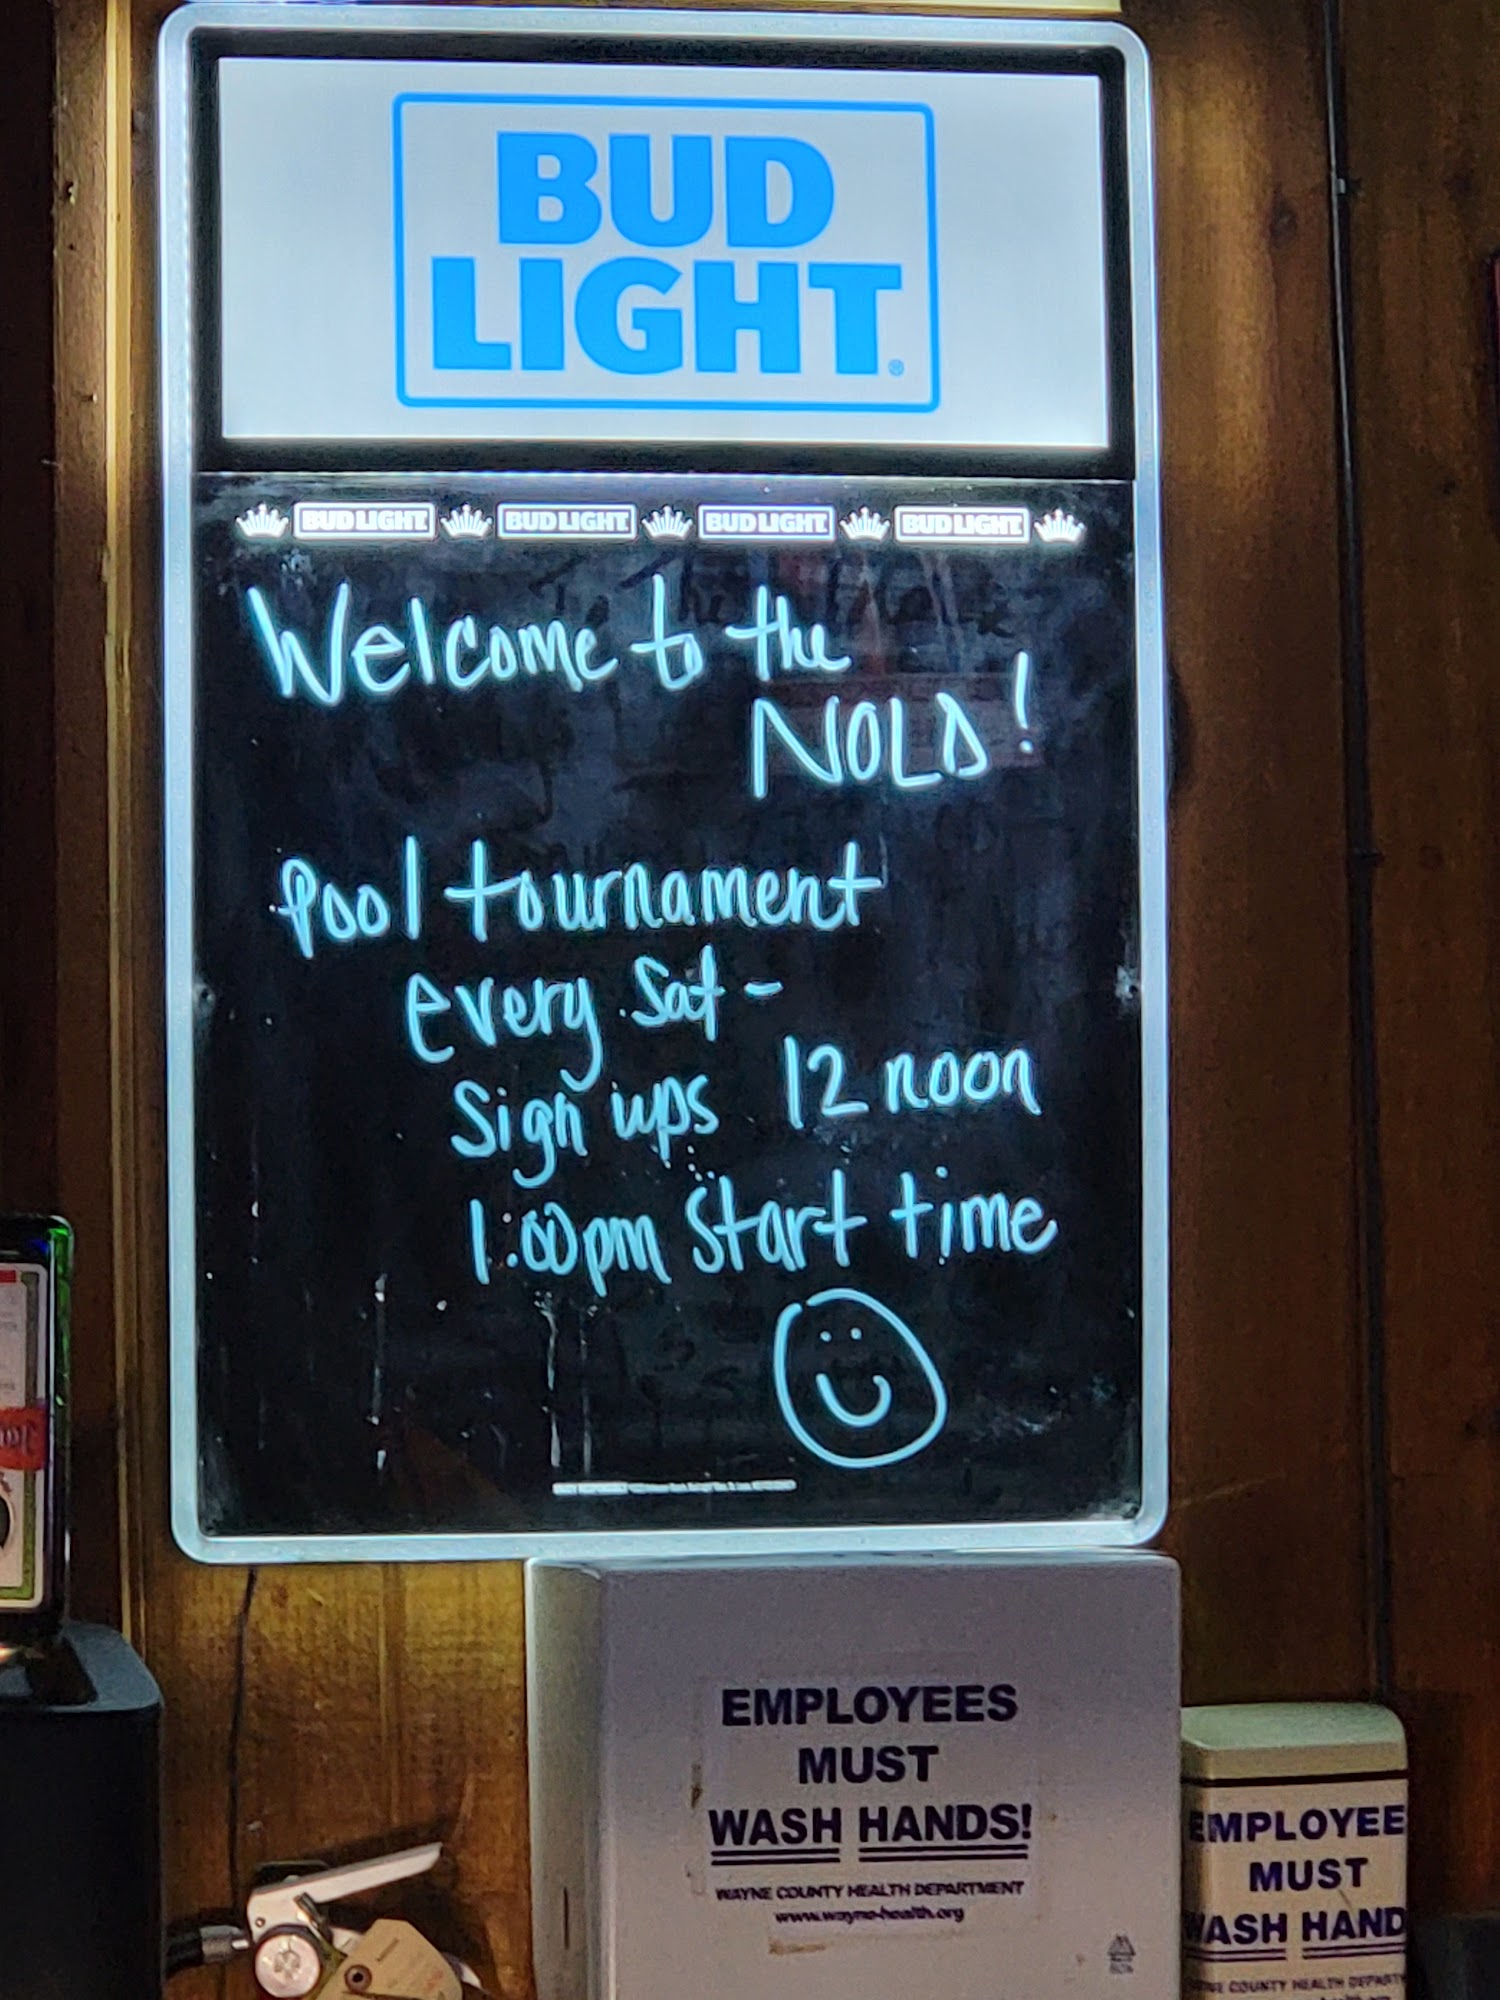 BUD
LIGHT®
BUD LIGHT BUD LIGHT BUD LIGHT BUD LIGHT
Welcome to the
NOLD!
Pool tournament
every Sat -
Sign ups 12 noon
1:00pm Start time
EMPLOYEES
MUST
WASH HANDS!
WAYNE COUNTY HEALTH DEPARTMENT
www.wayne-health.org
EMPLOYEE
MUST
ASH HAND
COUNTY HEALTH